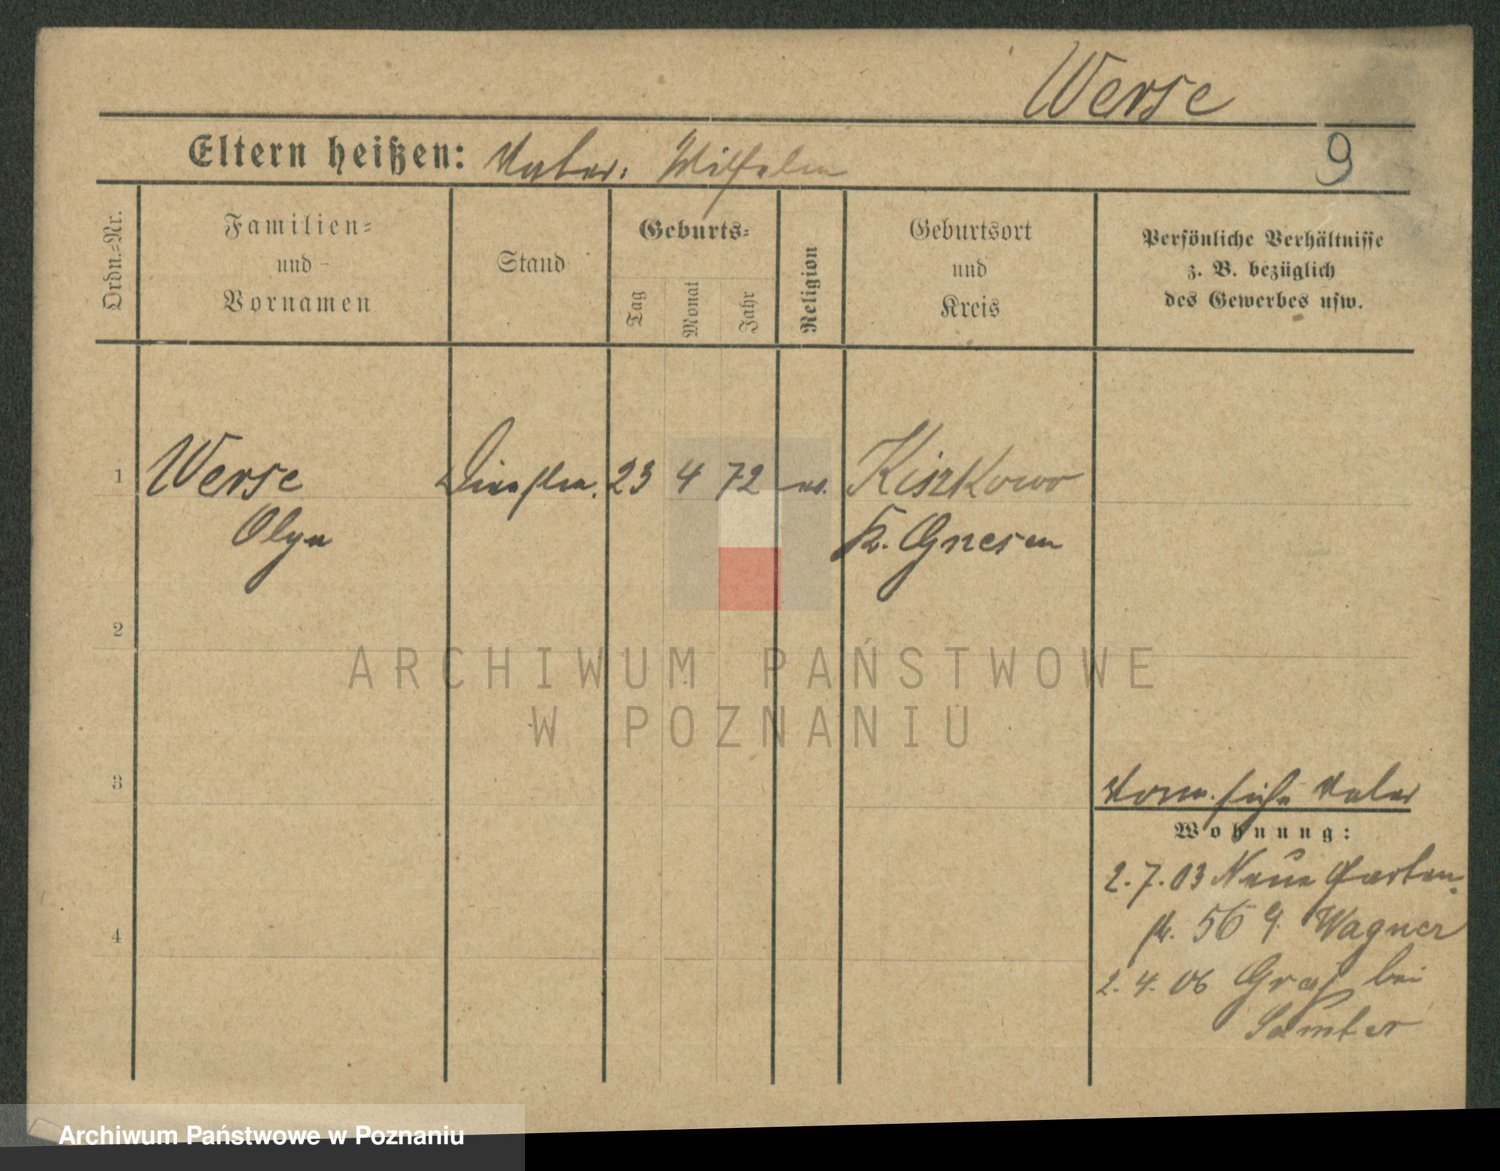 Werse
9
Eltern heißen: Vater: Wilhelm
Ordn.=Nr.
Familien=
und
Vornamen
Stand
Geburts=
Tag
Monat
Jahr
Religion
Geburtsort
und
Kreis
Persönliche Verhältnisse
z. B. bezüglich
des Gewerbes usw.
1
Werse 23 4 72 ev. Kiszkowo
Olga K. Gnesen
2
ARCHIWUM PAŃSTWOWE
W POZNANIU
3
siehe Vater
Wohnung:
2.7.03 Neue Garten
str. 56 Wagner
4
2.4.06 Graf bei
Samter
Archiwum Państwowe w Poznaniu